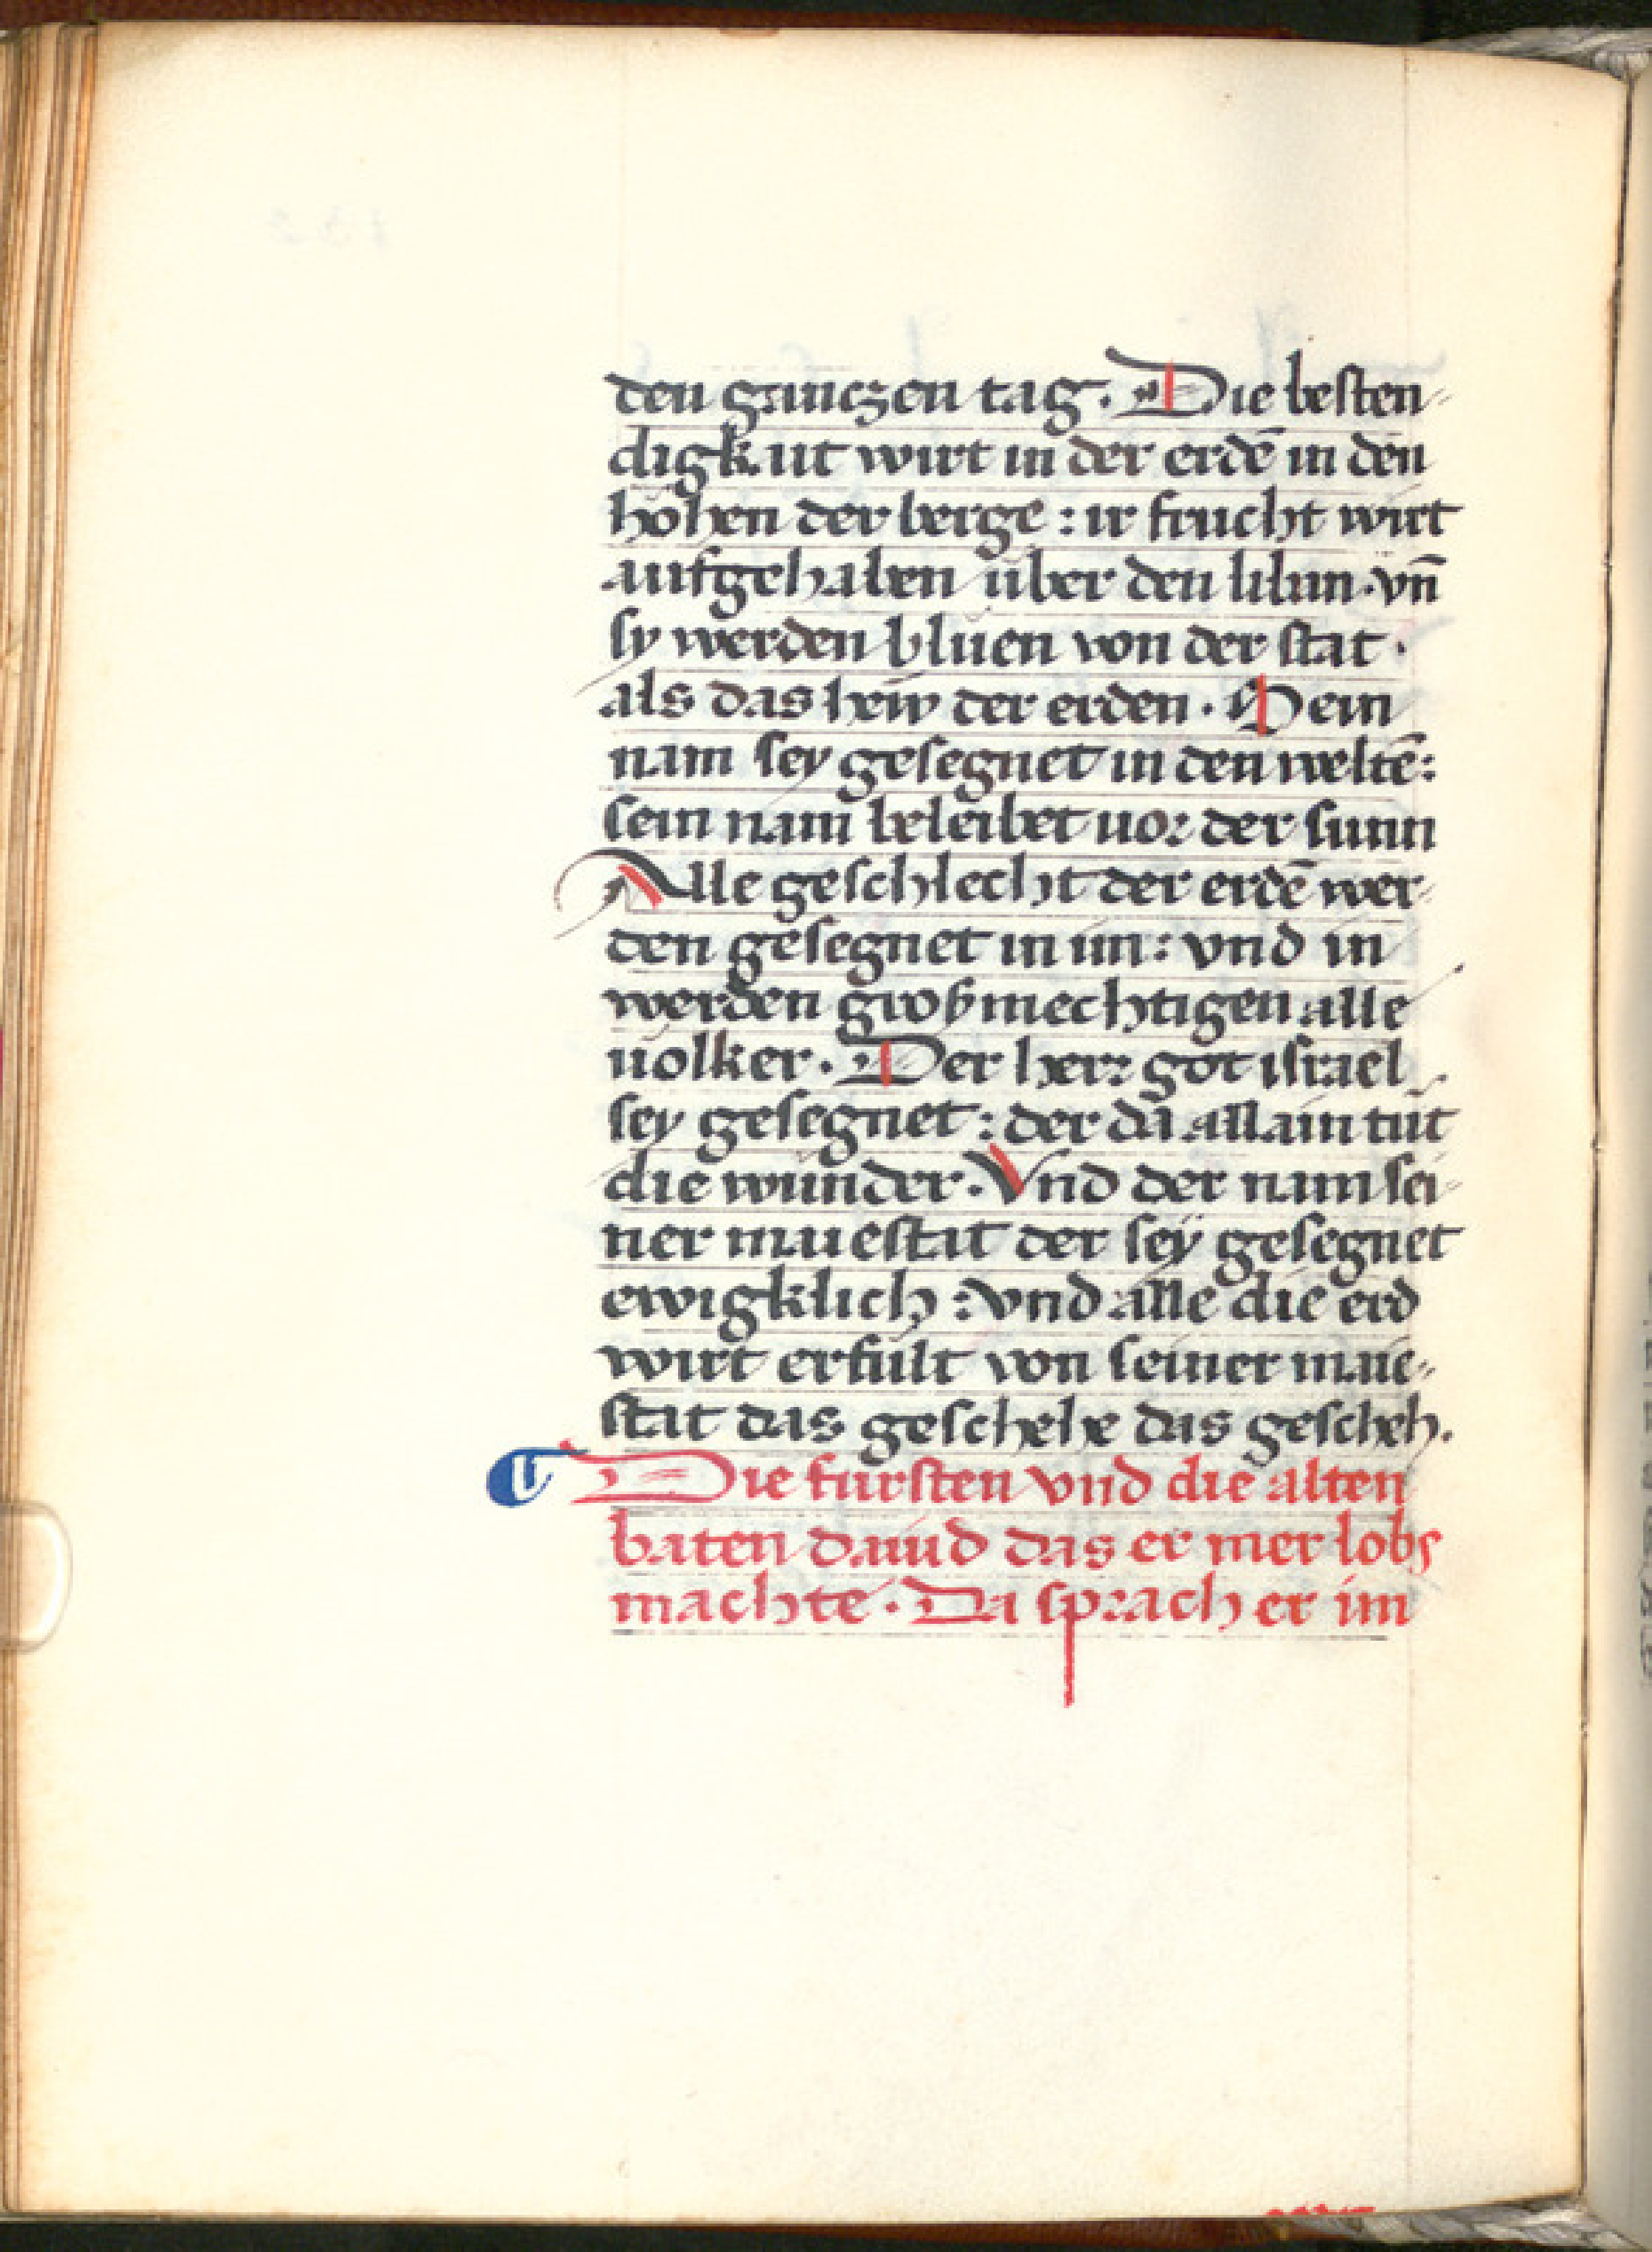 den ganczen tag. Die besten-
digkait wirt in der erdē in den
höhen der berge : ir frucht wirt
aufgehaben über den liban. vn̄
sy werden blüen von der stat .
als das heiw der erden . Sein
nam sey gesegnet in den weltē:
sein nam beleibet uor der sunn
Alle geschlecht der erdē wer-
den gesegnet in im : vnd in
werden großmechtigen alle
uölker . Der herr got israel
sey gesegnet : der da allain tůt
die wunder . Vnd der nam sei-
ner maiestat der sey gesegnet
ewigklich : vnd alle die erd
wirt erfült von seiner maie-
stat das geschehe das gescheh.
Die fürsten vnd die alten
baten dauid das er mer lobs
machte . Da sprach er im